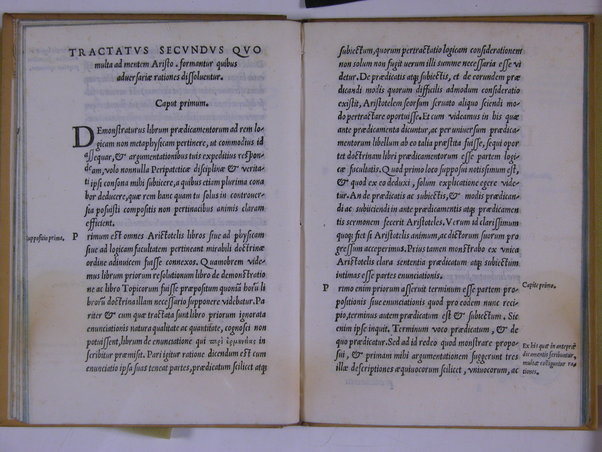 TRACTATVS SECVNDVS QVO
multa ad mentem Aristo. formantur quibus
aduersariæ rationes dissoluentur.
Caput primum.
DEmonstraturus librum prædicamentorum ad rem lo-
gicam non metaphysicam pertinere, ut commodius id
assequar, & argumentationibus tuis expeditius respon-
deam, uolo nonnulla Peripateticæ disciplinæ & uerita-
ti ipsi consona mihi subijcere, a quibus etiam plurima cona
bor deducere, quæ rem hanc quam tu solus in controuer-
sia posuisti compositis non pertinacibus animis claram
efficient.
Suppositio prima.
PRimum est omnes Aristotelis libros siue ad physicam
siue ad logicam facultatem pertineant mirabili doctrinæ
ordine adinuicem fuisse connexos. Quamobrem vide-
mus librum priorum resolutionum libro de demonstratio
ne ac libro Topicorum fuisse præpositum quoniã horũ li
brorũ doctrinam illam necessario supponere videbatur. Pa
riter & cum quæ tractata sunt libro priorum ignorata
enunciationis natura qualitate ac quantitate, cognosci non
potuissent, librum de enunciatione qui περὶ ἑρμηνείας in
scribitur præmisit. Pari igitur ratione dicendum est cum
enunciatio ipsa suas teneat partes, prædicatum scilicet atq;
subiectum, quorum pertractatio logicam considerationem
non solum non fugit uerum illi summe necessaria esse vi
detur. De prædicatis atq; subiectis, & de eorundem præ
dicandi modis quorum difficilis admodum consideratio
existit, Aristotelem seorsum seruato aliquo sciendi mo-
do pertractare oportuisse. Et cum videamus in his quæ
ante prædicamenta dicuntur, ac per uniuersum prædica-
mentorum libellum ab eo talia præstita fuisse, sequi opor
tet doctrinam libri prædicamentorum esse partem logi-
cæ facultatis. Quod primo loco supposui notissimum est,
& quod ex eo deduxi, solum explicatione egere vide-
tur. An de prædicatis ac subiectis, & modis prædican-
di ac subijciendi in ante prædicamentis atq; prædicamen
tis sermonem fecerit Aristoteles. Verum id clarissimum
quoq; fiet si Aristotelis animum, ac dictorum suorum pro
gressum acceperimus. Prius tamen monstrabo ex unica
Aristotelis clara sententia prædicatum atq; subiectum
intimas esse partes enunciationis.
Capite primo.
PRimo enim priorum asserit terminum esse partem pro-
positionis siue enunciationis quod pro eodem nunc reci-
pio, terminus autem prædicatum est & subiectum. Sic
enim ipse inquit. Terminum voco prædicatum, & de
quo prædicatur. Sed ad id redeo quod monstrare propo-
sui, & primam mihi argumentationem suggerunt tres
illæ descriptiones æquiuocorum scilicet, vniuocorum, ac
Ex his quæ in antepræ
dicamentis scribuntur,
multæ colliguntur ra
tiones.